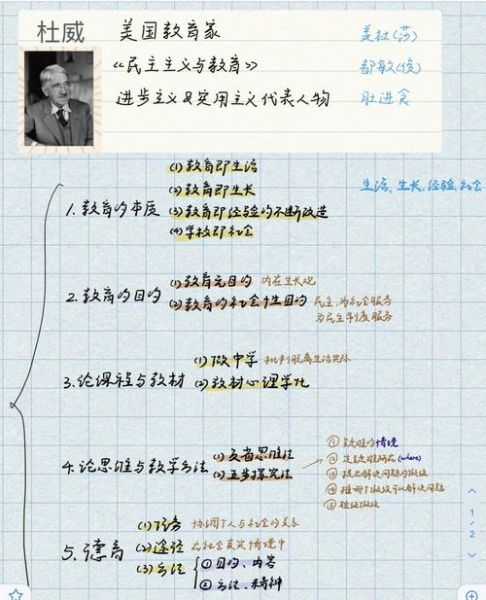 杜威 美国教育家 美杜(莎)
《民主主义与教育》 都敏(俊)
进步主义&实用主义代表人物 肚进食
(1) 教育即生活
生活、生长、经验、社会
(2) 教育即生长
1. 教育的本质 (3) 教育即经验的不断改造
(4) 学校即社会
(1) 教育无目的 内在生长观
2. 教育的目的 (2) 教育的社会性目的 民主,为社会服务
为民主制度服务
(1) 做中学 批判脱离生活实际
3. 论课程与教材 (2) 教材心理学化
① 疑难的情境
(1) 反省思维法 ② 定疑难所在(where)
4. 论思维与教学方法 (2) 五步探究法 ③ 提出解决问题的假设
④ 推断了假设可以解决问题
⑤ 验证假设
(1) 任务 协调个人与社会的关系
5. 德育 (2) 途径 在社会真实情境中
(3) 方法 ① 目的、内容
② 方法、精神
1
2